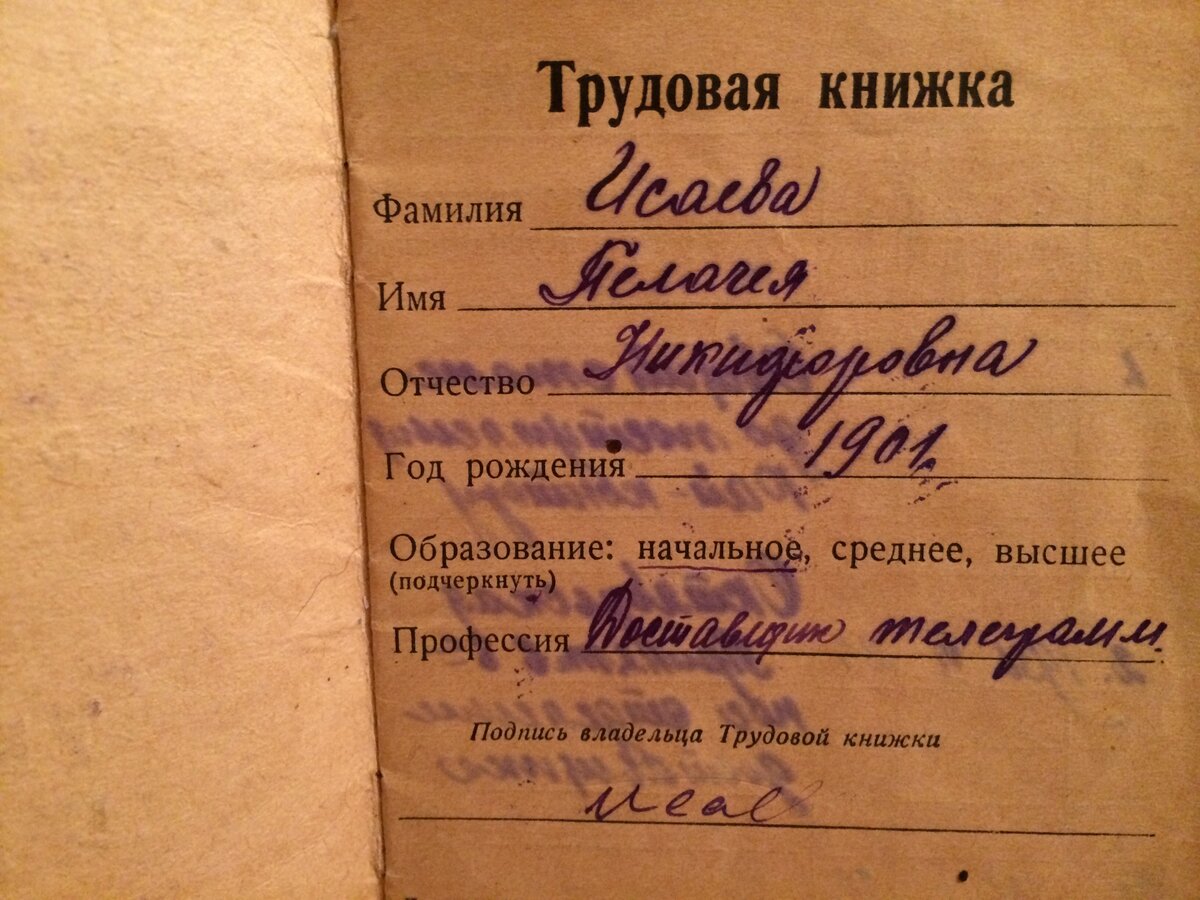 Трудовая книжка
Фамилия Исаева
Имя Пелагея
Отчество Никифоровна
Год рождения 1901.
Образование: начальное, среднее, высшее
(подчеркнуть)
Профессия Доставщик телеграмм.
Подпись владельца Трудовой книжки
Исае